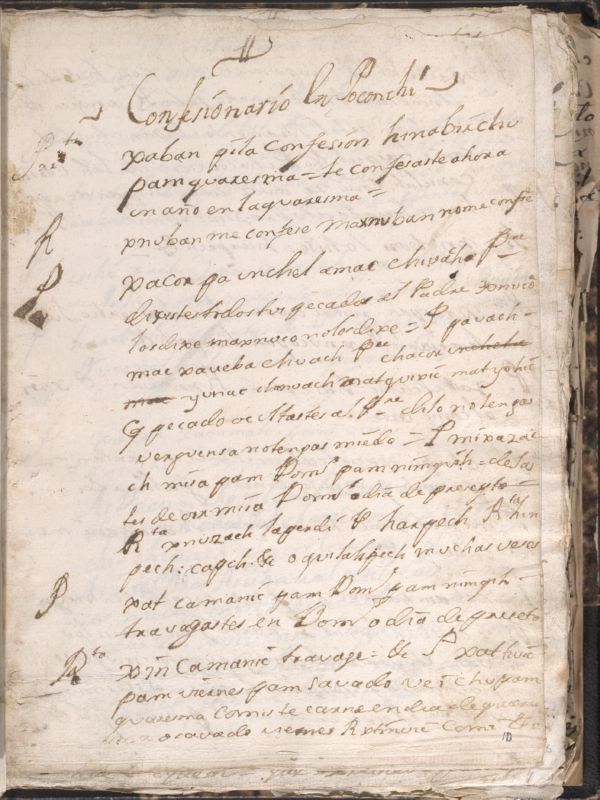 Confesionario En Poconchi
Pta xaban pe la confesion hinabix chu
pam quaresma = te confesaste ahora
un año en la quaresma =
R xnuban me confese maxnuban no me confese
P xacor pa unchel amac chiuach Pre
dixistes todos tus pecados al Padre xnucor
los dixe maxnuco no los dixe = P
mac xaueba chuach Pre chacor unchela
mac yunac chauach matquixic matyohic
Q pecado ocultastes al Pre dilo no tengas
verguensa no tengas miedo = P mi xazac
ch misa pam Domo pam nimquih = dejas
tes de oir misa Domo o dia de presepto
Rta xnuzach la perdi P harpech Rta hin
pech: capeh: &c o quilahpech muchas veses
P xat camanic pam Domo pam nimqih
travagastes en Domo o dia de preseto
Rta xin camanic travage = &c P xat tiuic
pam viernes pam savado ve i chupam
quaresma comiste carne en dia de quares
ma o savado viernes R xtinuic comi
10